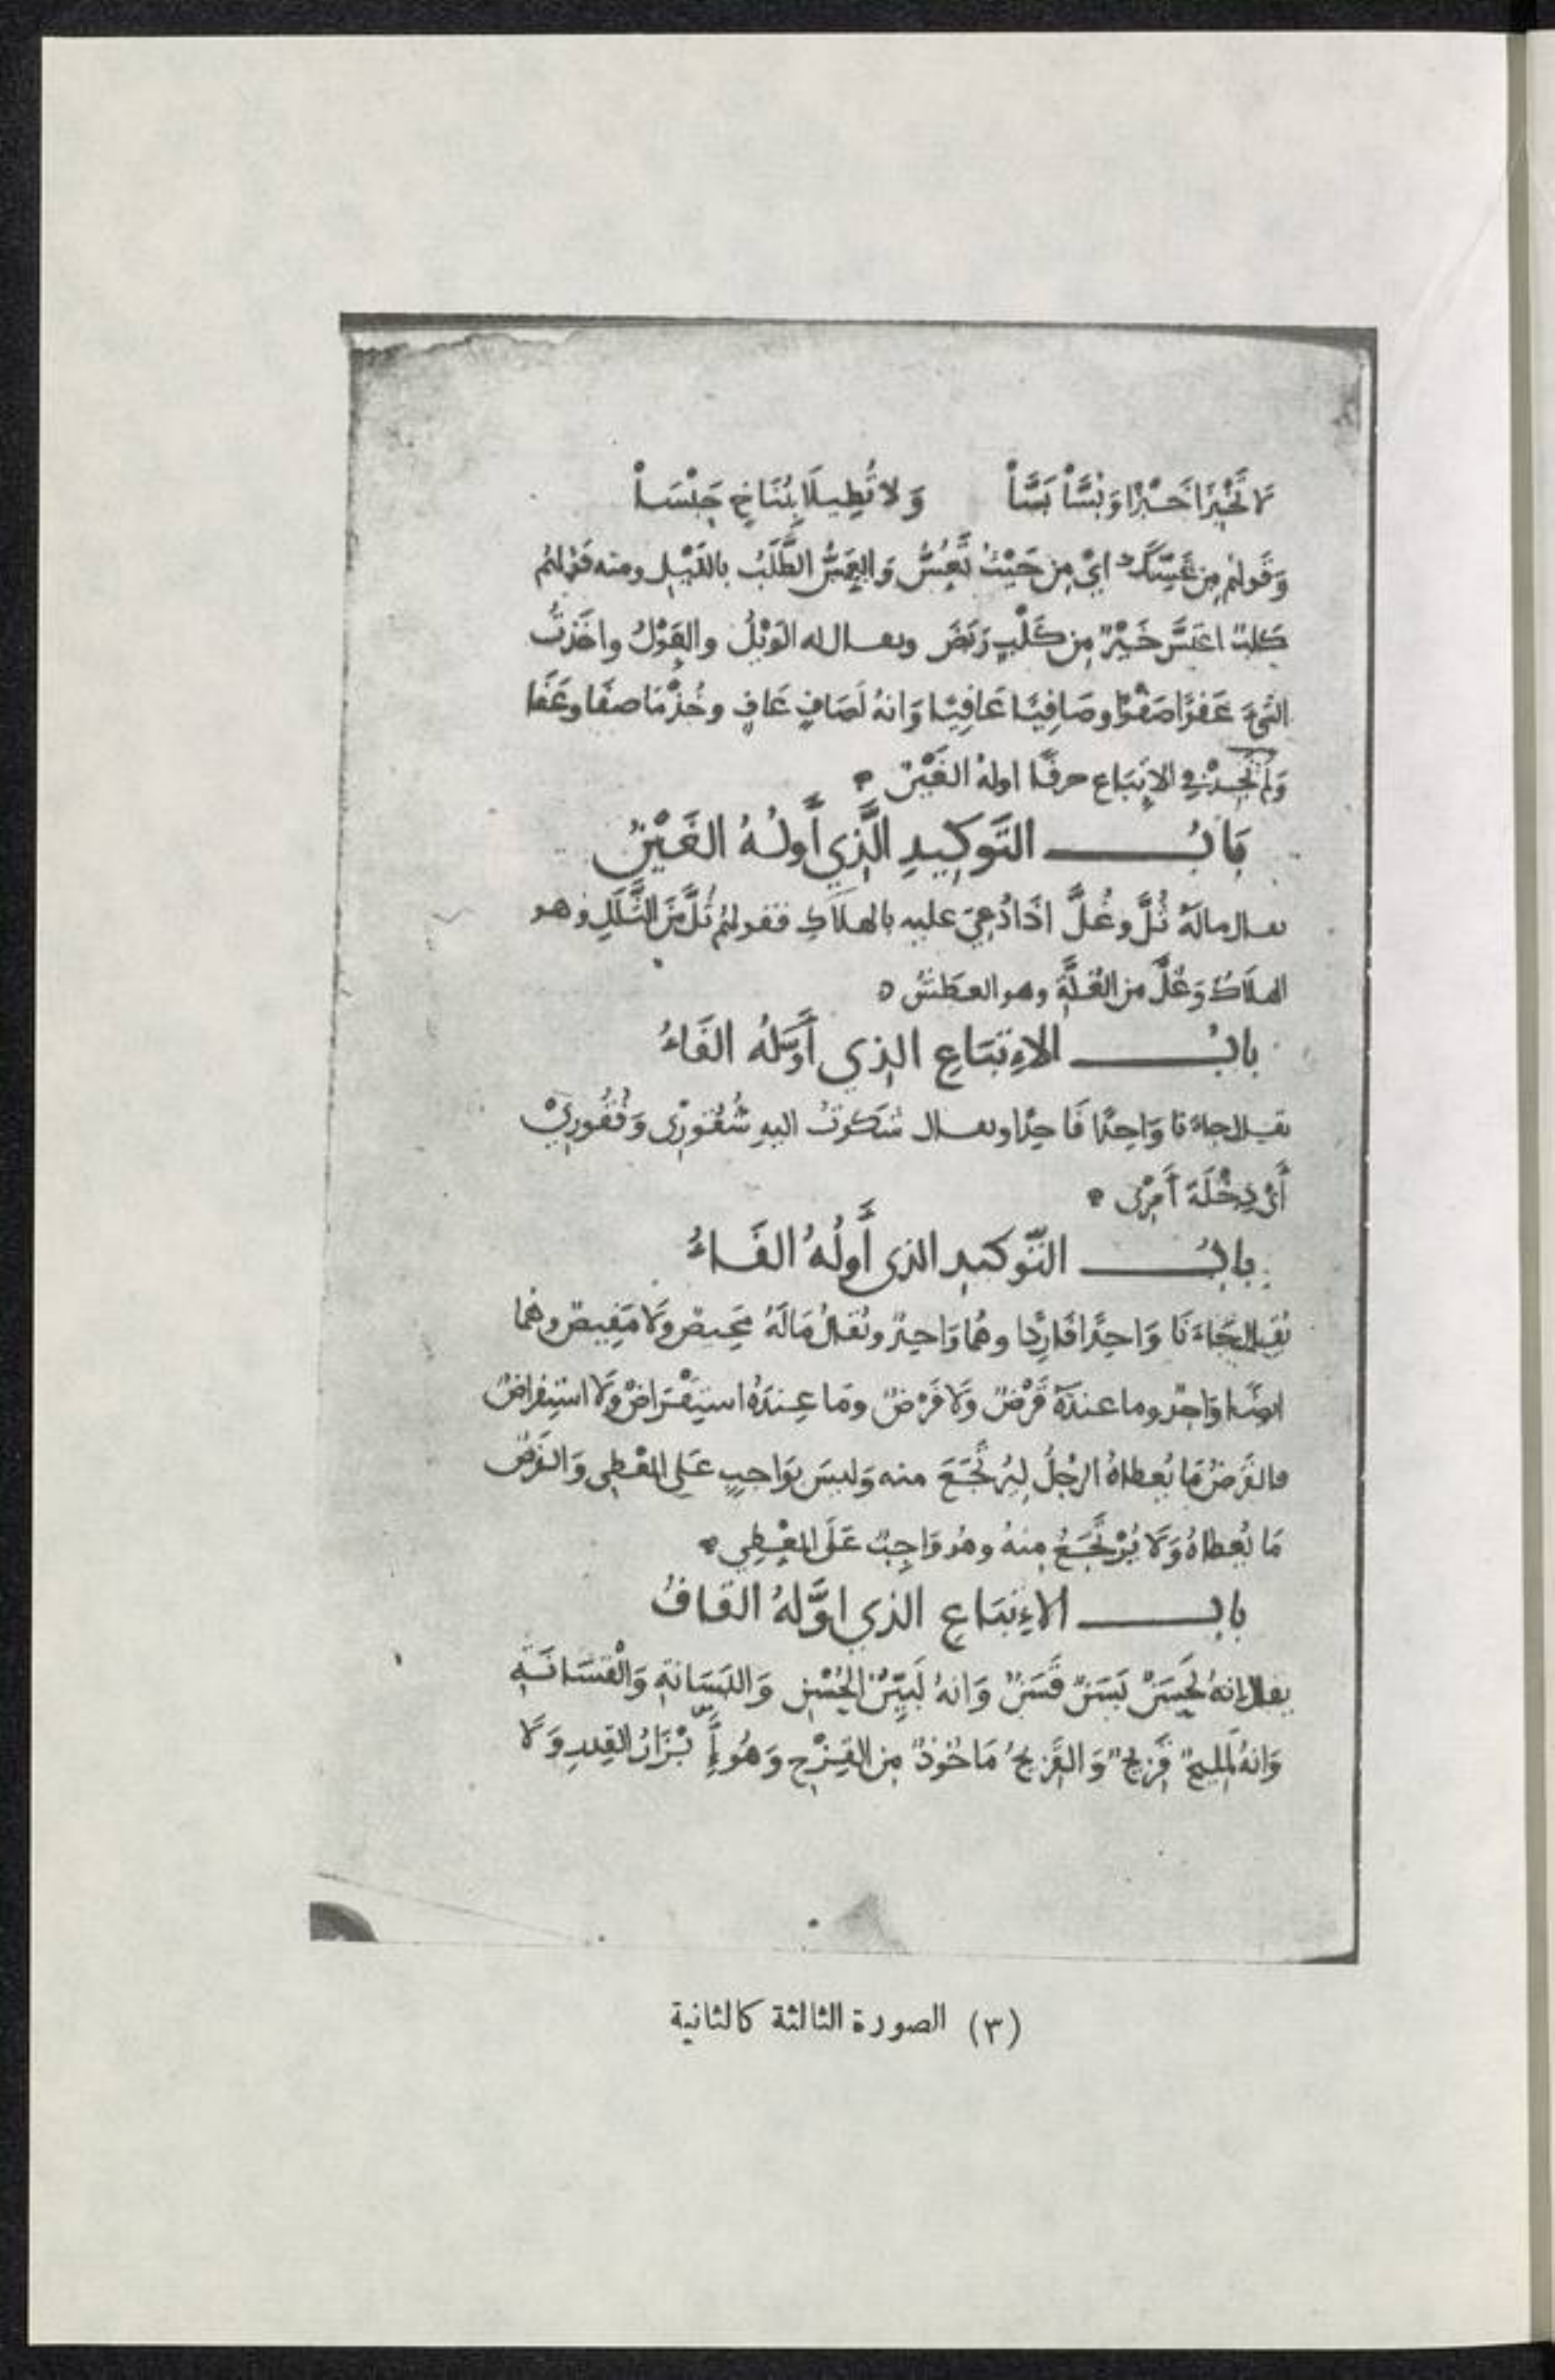 لا تَخْبِزَا خَبْزًا وَبُسَّا بَسَّا وَلا تُطِيلَا بِمُنَاخٍ حَبْسَا
وَقَولهُم مِن عَسِّكَ أَيْ مِن حَيْثُ تَعُسُّ وَالعَسُّ الطَّلَبُ بِاللَّيْلِ ومنه قَوْلهُم
كَلبٌ اعْتَسَّ خَيْرٌ مِن كَلْبٍ رَبَضَ ويقال له الوَيْلُ والعَوْلُ واخَذتُ
الشيءَ عَفْوًا صَفْوًا وصَافِيًا عَافِيًا وَانهُ لَصَافٍ عَافٍ وخُذْ مَا صفَا وعَفَا
وَلم نجِدْ في الاِتبَاع حرفًا اولهُ الغَيْن
بَابُ التَّوكِيدِ الَّذِي أَولُهُ الغَيْنُ
يقال مالَهُ ثُلَّ وغُلَّ اذَا دُعِيَ عليه بالهلَاكِ فقولهُم ثُلَّ مِنَ الثَّلَلِ وهو
الهلَاكُ وَغُلَّ من الغُلَّةِ وهو العَطَشُ
بابُ الاِتبَاعِ الذِي أَوَّلهُ الفَاءُ
يقال جاءَنا وَاحِدًا فَاحِدًا ويقال شَكَوتُ اليهِ شُقُورِى وَفُقُورِيْ
أَىْ دِخْلَةَ أَمْرِى
بابُ التَّوكيدِ الذى أَولُهُ الفَاءُ
يُقالُ جَاءَنَا وَاحِدًا فَارِدًا وهُمَا وَاحِدٌ ويُقالُ مَالَهُ مَحِيصٌ وَلَا مَفِيصٌ وهُما
ايضًا وَاحِدٌ وما عندَهُ قَرْضٌ وَلَا فَرْضٌ ومَا عِندَهُ استِقْرَاضٌ وَلَا استِفراضٌ
فالقَرضُ مَا يُعطاهُ الرجُلُ لِيُرتَجَعَ منه وَليسَ بوَاجبٍ عَلى المُعْطِى وَالفَرْضُ
مَا يُعطاهُ وَلَا يُرْتَجَعُ مِنهُ وهُو وَاجِبٌ عَلَى المُعْطِي
بابُ الاِتبَاعِ الذي اوَّلهُ القافُ
يقالُ إنهُ لحَسَنٌ بَسَنٌ قَسَنٌ وَانهُ لَبَيِّنُ الحُسْنِ وَالبَسَانةِ وَالْقَسَانَةِ
وَانهُ لمَلِيحٌ قَزِيحٌ وَالقَزِيحُ مَاخُوذٌ مِن القِزْحِ وَهُو أَبْزَارُ القِدرِ وَلَا
(٣) الصورة الثالثة كالثانية